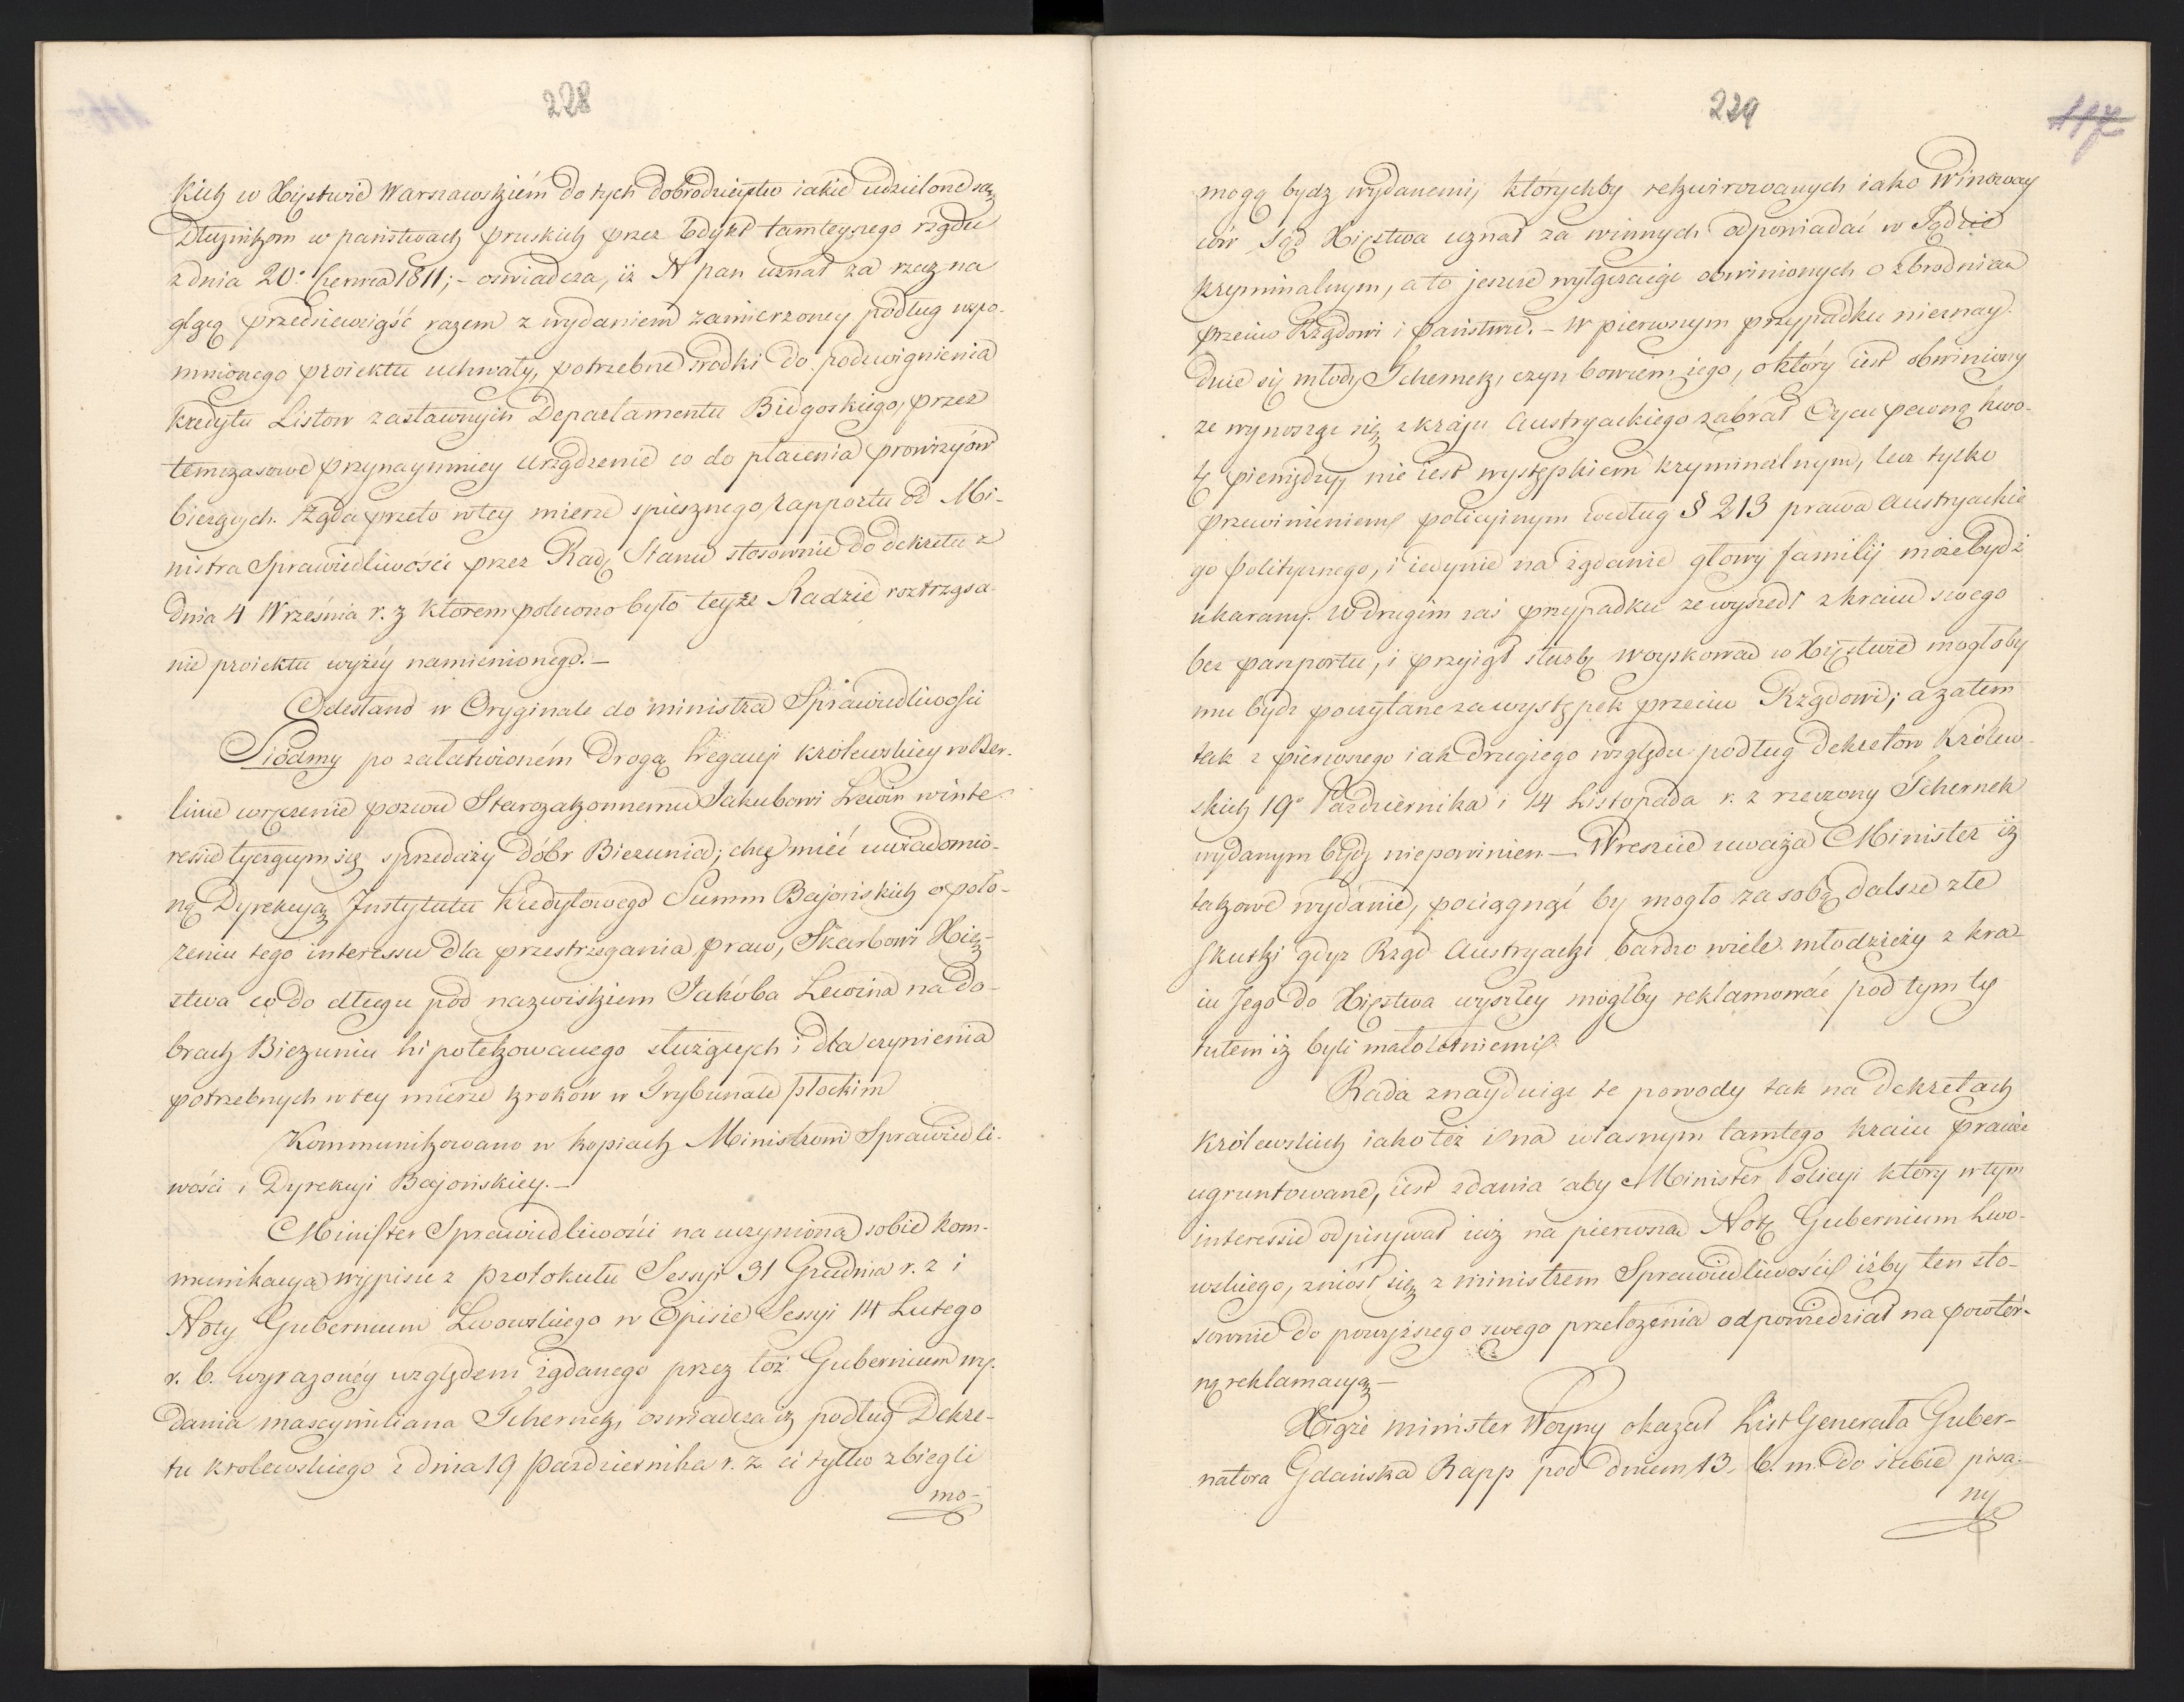 228
kich w Xięstwie Warszawskiém do tych dobrodzieystw iakie udzielone są
Dłużnikom w państwach pruskich przez Edykt tamteyszego rządu
z dnia 20º Czerwca 1811; - oswiadcza, iż N pan uznał za rzecz na
głąęą przedsiewziąść razem z wydaniem zamierzoney podług wspo-
mnionego proiektu uchwały, potrzebne srodki do podzwignienia
kredytu Listow zastawnych Departamentu Bidgoskiego, przez
temczasowe przynaymniey urządzenie co do płacenia prowizyów
bieżących. Żąda przeto w tey mierze spiesznego Rapportu od Mi-
nistra Sprawiedliwości przez Radę Stanu stosownie do dekretu z
dnia 4 Września r. z. ktorem polecono było teyże Radzie roztrząsa-
nie proiektu wyżey namienionego. —
Odesłano w Oryginale do ministra Sprawiedliwości
Siódmy po załatwioném drogą Legacyi królewskiey w Ber-
linie wręczenie pozwu Starozakonnemu Jakubowi Lewin w inte-
ressie tyczącym się sprzedaży dóbr Biezunia; chcę mieć uwiadomio-
ną Dyrekcyą Instytutu Kredytowego Summ Bajońskich o poło-
żeniu tego interessu dla przestrzegania praw, Skarbowi Xię-
stwa co do długu pod nazwiskiem Jakóba Lewina na do-
brach Biezuniu hipotekowanego służących i dla czynienia
potrzebnych w tey mierze kroków w Trybunale płockim
Kommunikowano w kopiach Ministrowi Sprawiedli-
wości i Dyrekcyi Bajońskiey. —
Minister Sprawiedliwości na uczynioną sobie kom-
munikacyą wypisu z protokułu Sessyi 31 Grudnia r. z i
Noty Gubernium Lwowskiego w Opisie Sessyi 14 Lutego
r. b. wyrazonéy względem żądanego przez toż Gubernium wy-
dania maxymiliana Schernek, oswiadcza iż podług Dekre-
tu krolewskiego z dnia 19 pazdziernika r. z. ci tylko zbiegli
mo-
229
117
mogą bydz wydanemi, którychby rekwirowanych iako Winoway
ców Sąd Xięstwa uznał za winnych odpowiadać w Sądzie
kryminalnym, a to jeszcze wyłączaiąc obwinionych o zbrodnie
przeciw Rządowi i państwu. - W pierwszym przypadku nieznay-
duie się młody Schernek, czyn bowiem iego, o który iest obwiniony
ze wynosząc się z kraju Austryackiego zabrał Oycu pewną kwo-
tę pieniędzy, nie iest występkiem kryminalnym, lecz tylko
przewinieniem policyinym według § 213 prawa Austryackie
go politycznego, i iedynie na żądanie głowy familij może bydź
ukarany. W drugim zaś przypadku ze wyszedł z kraiu swego
bez paszportu, i przyiął służbę woyskową w Xięstwie mogłoby
mu bydz poczytane za występek przeciw Rządowi; a zatem
tak z pierwszego iak drugiego względu podług dekretow Królew-
skich 19º Pazdziernika i 14 Listopada r. z rzeczony Schernek
wydanym bydz niepowinien — Wreszcie uważa Minister iż
takowe wydanie, pociągnąć by mogło za sobą dalsze złe
skutki gdyz Rząd Austryacki bardzo wiele młodzieży z kra-
iu Jego do Xięstwa wyszłey mógłby reklamować pod tym ty
tułem iż byli małoletniemi.
Rada znayduiąc te powody tak na dekretach
królewskich iakoteż i na własnym tamtego kraiu prawie
ugruntowane, iest zdania aby Minister Policyi który w tym
interessie odpisywał iuż na pierwszą Notę Gubernium Lwo-
wskiego, zniósł się z ministrem Sprawiedliwości iżby ten sto-
sownie do powyższego swego przełożenia odpowiedział na powtór-
ną reklamacyą —
Xiąże minister Woyny okazał List Generała Guber-
natora Gdańska Rapp pod dniem 13. b. m. do siebie pisa-
ny